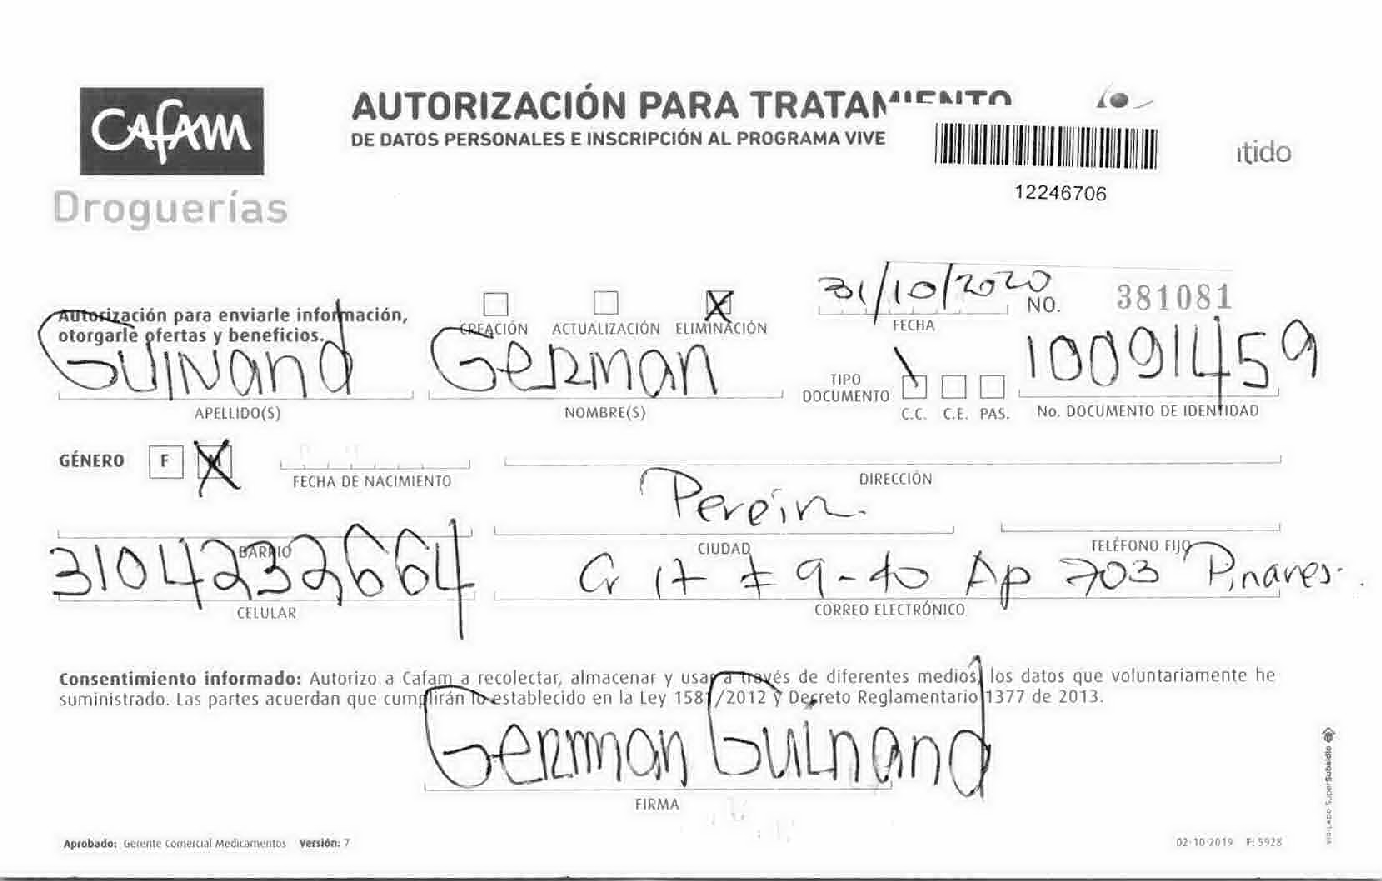 CAFAM
Droguerías
AUTORIZACIÓN PARA TRATAMIENTO
DE DATOS PERSONALES E INSCRIPCIÓN AL PROGRAMA VIVE
12246706
Autorización para enviarle información,
otorgarle ofertas y beneficios.
CREACIÓN ACTUALIZACIÓN ELIMINACIÓN
31/10/2020
FECHA
NO. 381081
Guinand German
APELLIDO(S) NOMBRE(S)
TIPO
DOCUMENTO
C.C. C.E. PAS.
10091459
No. DOCUMENTO DE IDENTIDAD
GÉNERO F
FECHA DE NACIMIENTO
DIRECCIÓN
BARRIO
CIUDAD
TELÉFONO FIJO
3104232664
CELULAR
Cr 17 # 9-40 Ap 703 Pinares.
CORREO ELECTRÓNICO
Consentimiento informado: Autorizo a Cafam a recolectar, almacenar y usar a través de diferentes medios, los datos que voluntariamente he
suministrado. Las partes acuerdan que cumplirán lo establecido en la Ley 1581/2012 y Decreto Reglamentario 1377 de 2013.
German Guinand
FIRMA
Aprobado: Gerente Comercial Medicamentos Versión: 7
02-10-2019 F: 5928